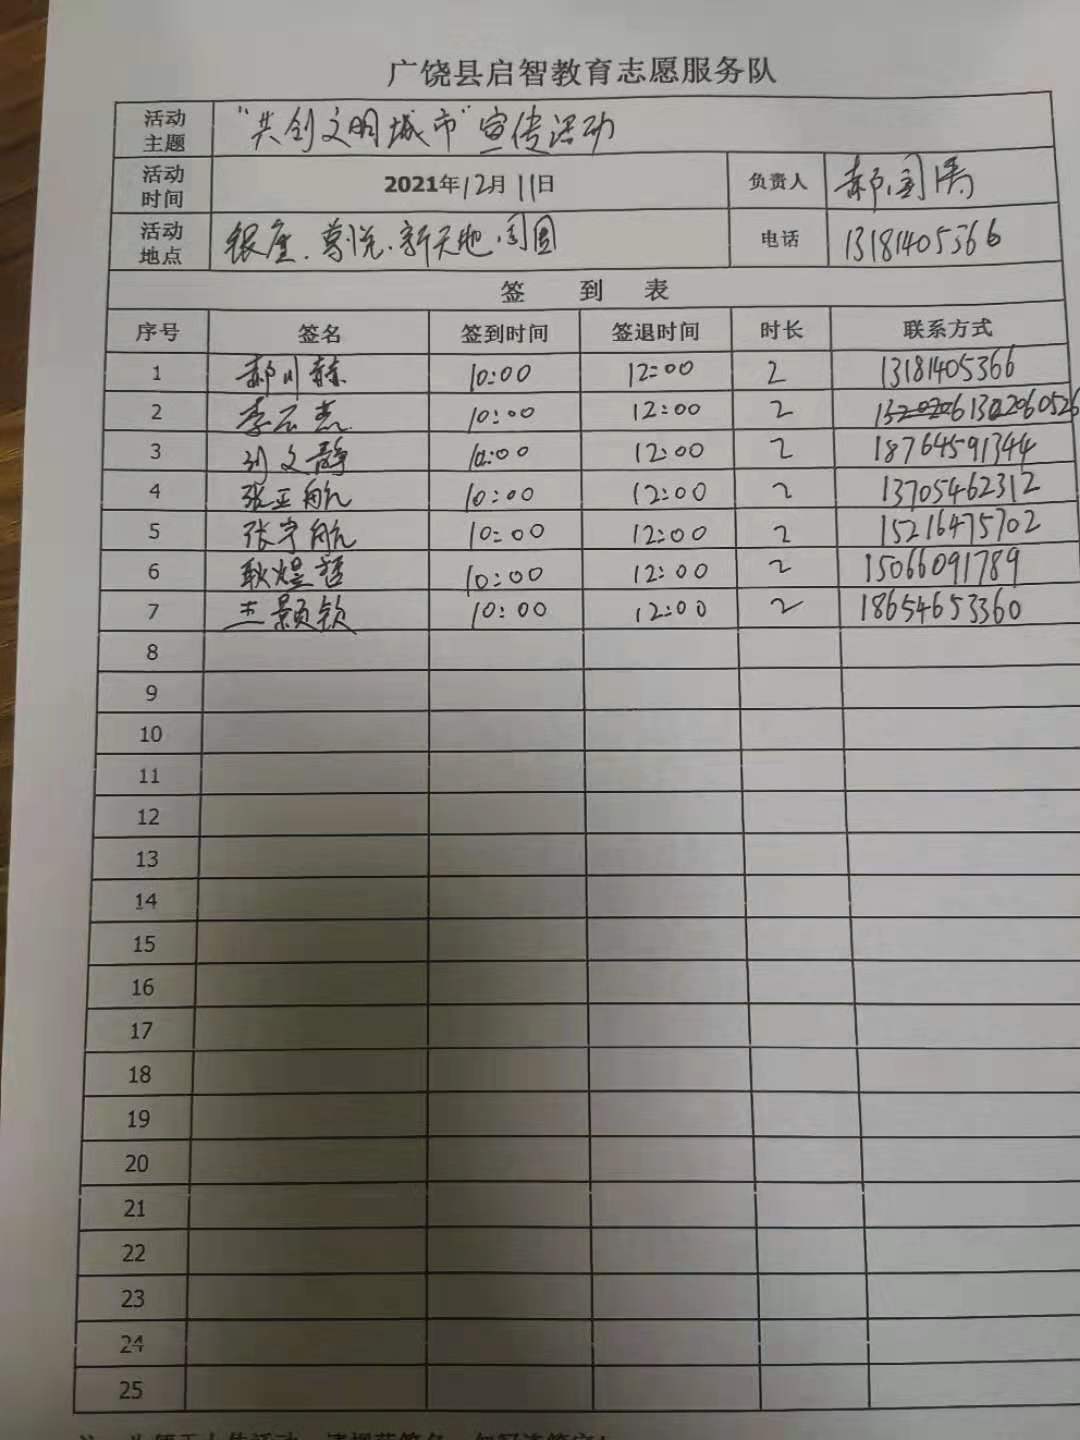 广饶县启智教育志愿服务队
活动主题 "共创文明城市"宣传活动
活动时间 2021年12月11日 负责人 郝
活动地点 银座、尊悦、新天地、周围 电话 13181405366
签 到 表
序号 签名 签到时间 签退时间 时长 联系方式
1 郝 10:00 12:00 2 13181405366
2 李 10:00 12:00 2
3 刘文静 10:00 12:00 2 18764591344
4 张正航 10:00 12:00 2 13705462312
5 张宇航 10:00 12:00 2 15216475702
6 耿煜哲 10:00 12:00 2 15066091789
7 颢钦 10:00 12:00 2 18654653360
8
9
10
11
12
13
14
15
16
17
18
19
20
21
22
23
24
25